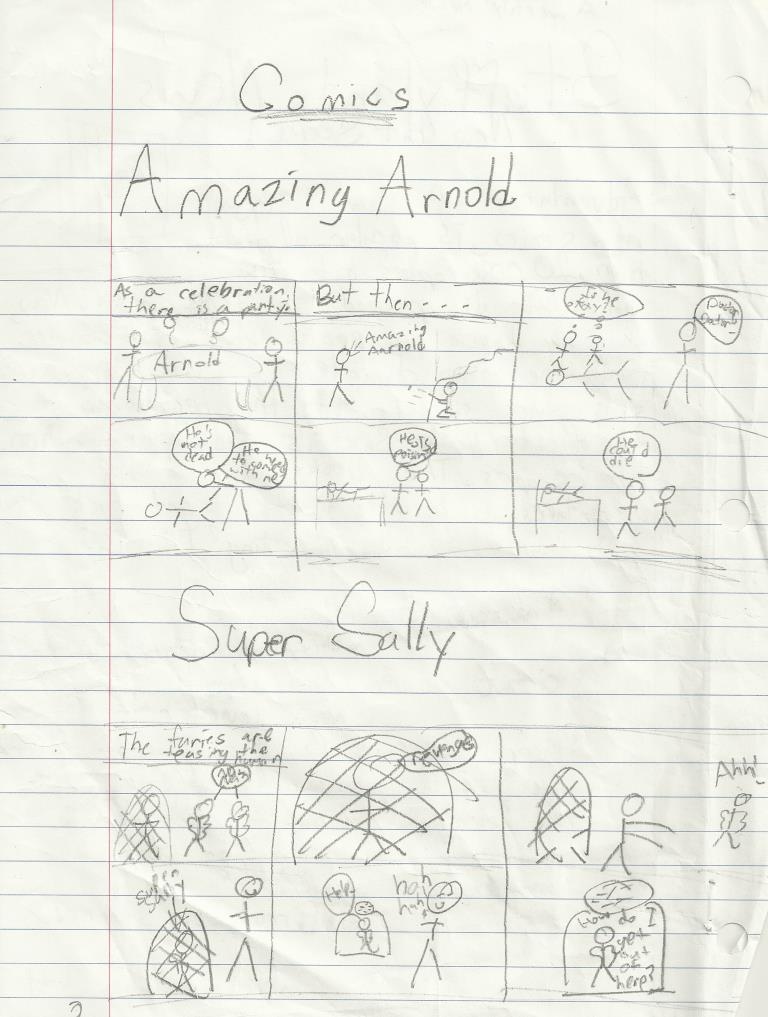 Comics
Amazing Arnold
As a celebration,
there is a party.
Arnold
But then....
Amazing
Aarnold
Is he
okay?
Doctor
Doctor
He's
not
dead
He needs
to come
with me
He is
poisind
He
could
die
Super Sally
The furies are
teasing the
human
revenge
Ahh!
super
sally
Help
hah
hah
How do I
get
out
of
here?